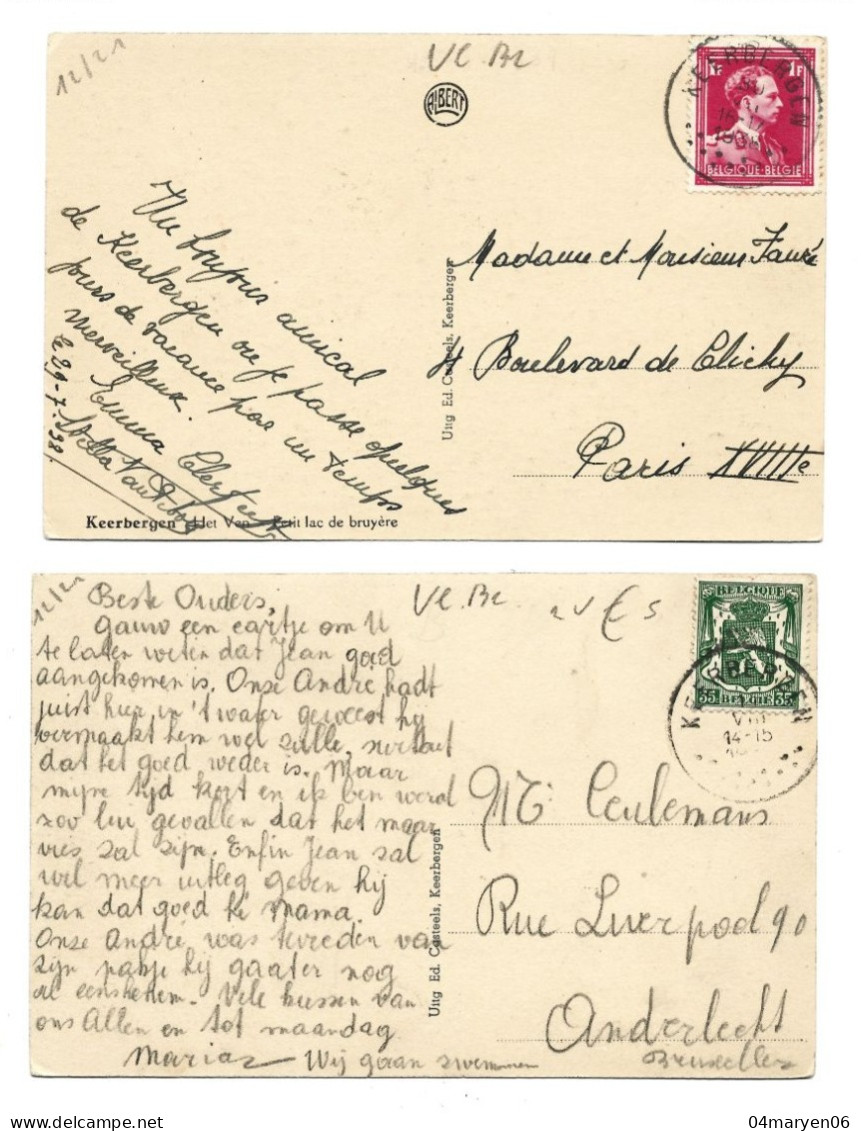 12/21
VC. Bc
ALBERT
1F 1F
BELGIQUE-BELGIE
KEERBERGEN
16-17
Un bonjour amical
de Keerbergen ou je passe quelques
jours de vacance par un temps
merveilleux.
Emma
Stella
le 29-7-38.
Uitg Ed. Casteels, Keerbergen
Madame et Monsieur Fauré
Boulevard de Clichy
Paris XVIIIe
Keerbergen Het Ven Petit lac de bruyère
12/21
VC. Bc
€ 5
BELGIQUE
35 BELGIE 35
KEERBERGEN
VIII
14-15
Beste Ouders,
gauw een cartje om U
te laten weten dat Jean goed
aangekomen is. Onze André hadt
juist hier in 't water geweest hij
vermaakt hem wel zulle, surtout
dat het goed weder is. Maar
mijne tijd kort en ik ben werd
zoo lui gevallen dat het maar
vies zal zijn. Enfin Jean zal
wel meer uitleg geven hij
kan dat goed hé mama.
Onze André was tevreden van
zijn pakje hij gaater nog
al eens hem. Vele kussen van
ons Allen en tot maandag
Maria Wij gaan zwemmen
Uitg Ed. Casteels, Keerbergen
Mr Ceulemans
Rue Liverpool 90
Anderlecht
Bruxelles
04maryen06